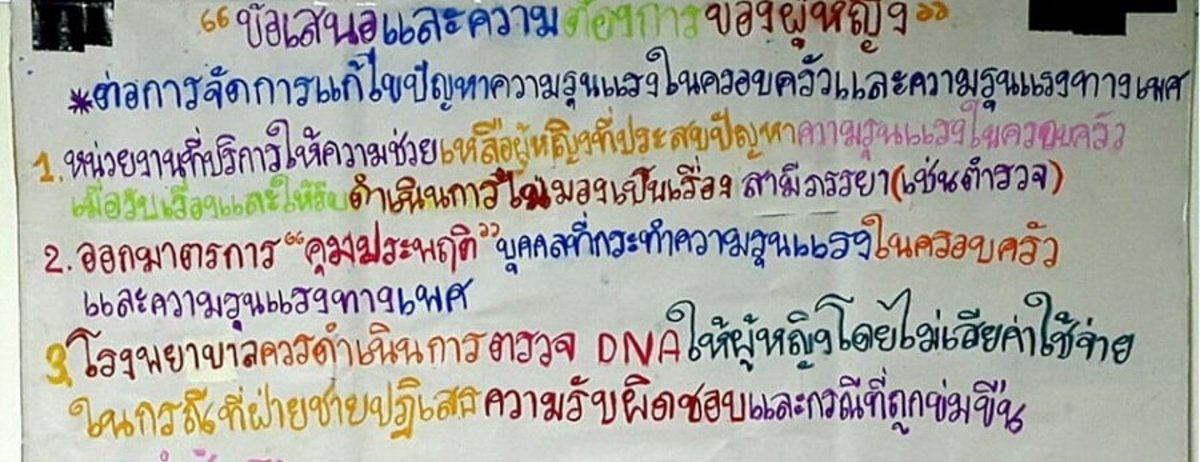 “ข้อเสนอและความต้องการของผู้หญิง”
*ต่อการจัดการแก้ไขปัญหาความรุนแรงในครอบครัวและความรุนแรงทางเพศ
1. หน่วยงานที่บริการให้ความช่วยเหลือผู้หญิงที่ประสบปัญหาความรุนแรงในครอบครัว
เมื่อรับเรื่องและให้รีบดำเนินการไม่มองเป็นเรื่อง สามีภรรยา(เช่นตำรวจ)
2. ออกมาตรการ “คุมประพฤติ” บุคคลที่กระทำความรุนแรงในครอบครัว
และความรุนแรงทางเพศ
3. โรงพยาบาลควรดำเนินการตรวจ DNA ให้ผู้หญิงโดยไม่เสียค่าใช้จ่าย
ในกรณีที่ฝ่ายชายปฏิเสธความรับผิดชอบและกรณีที่ถูกข่มขืน